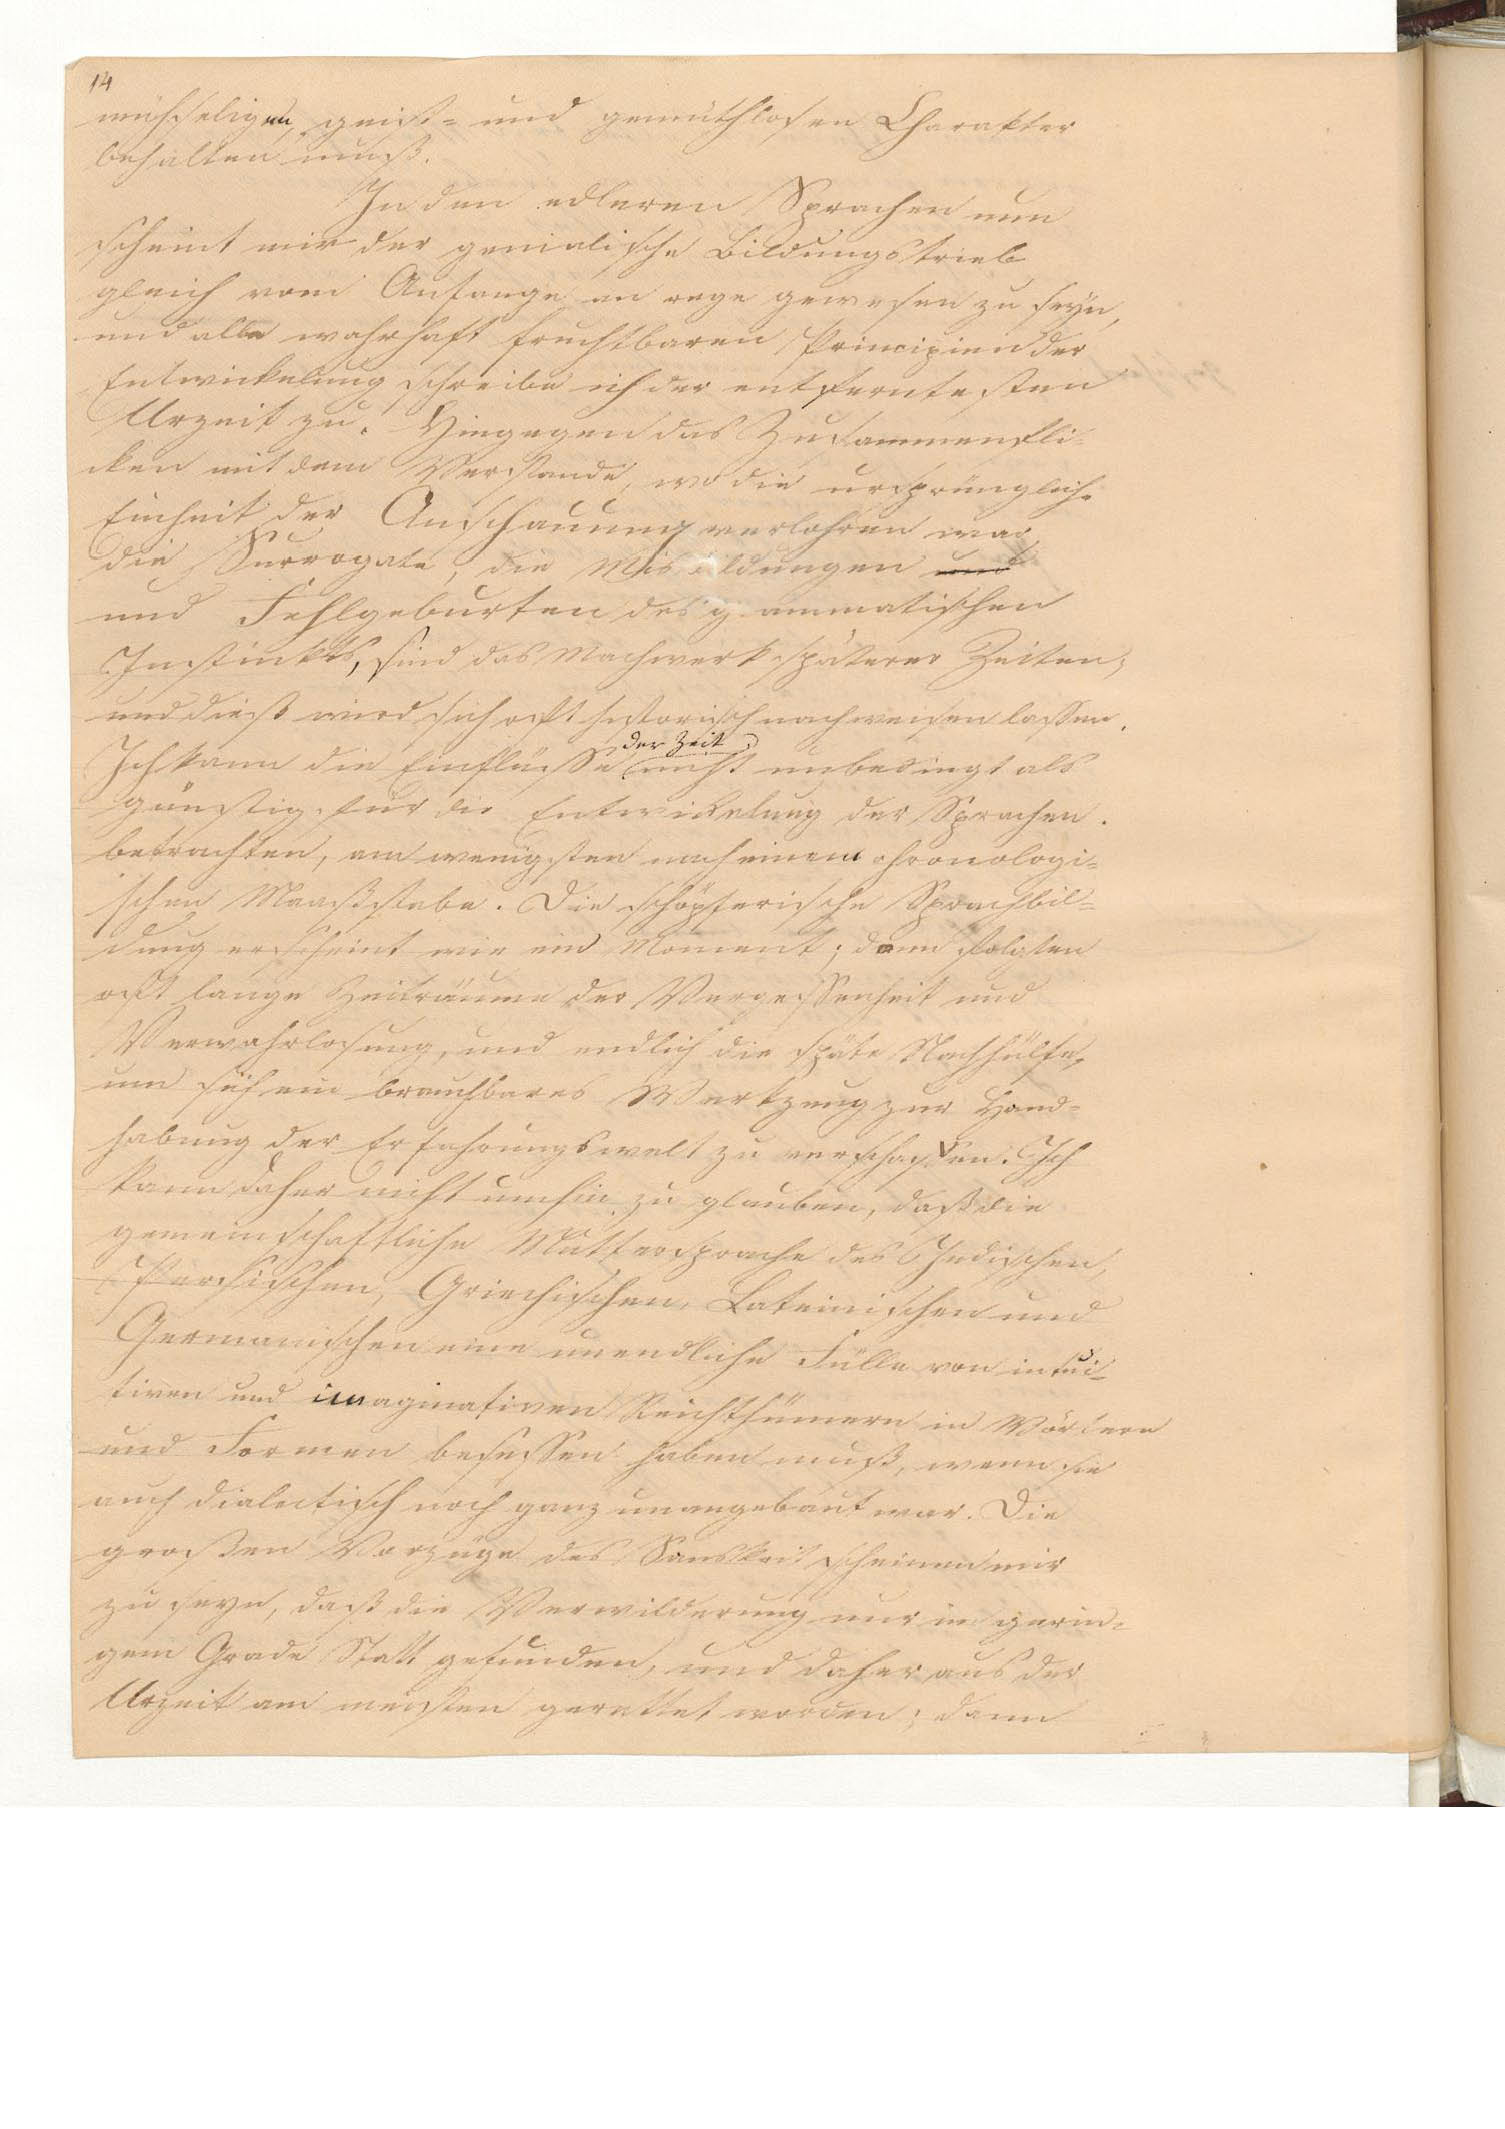 14
mühseligen, geist- und gemüthlosen Charakter
behalten muß.
In den edleren Sprachen nun
scheint mir der genialische Bildungstrieb
gleich vom Anfange an rege gewesen zu seyn,
und alle wahrhaft fruchtbaren Principien der
Entwickelung schreibe ich der entferntesten
Urzeit zu. Hingegen das Zusammenfli-
cken mit dem Verstande, wo die ursprüngliche
Einheit der Anschauung verlohren war,
die Surrogate, die Misbildungen und
und Fehlgeburten des grammatischen
Instinkts, sind das Machwerk späterer Zeiten;
und dieß wird sich oft historisch nachweisen lassen.
der Zeit
Ich kann die Einflüsse nicht unbedingt als
günstig für die Entwickelung der Sprachen
betrachten, am wenigsten nach einem chronologi-
schen Maaßstabe. Die schöpferische Sprachbil-
dung erscheint wie ein Moment; dann folgten
oft lange Zeiträume der Vergessenheit und
Verwahrlosung, und endlich die späte Nachhülfe,
um sich ein brauchbares Werkzeug zur Hand-
habung der Erfahrungswelt zu verschaffen. Ich
kann daher nicht umhin zu glauben, daß die
gemeinschaftliche Muttersprache des Indischen,
Persischen, Griechischen, Lateinischen und
Germanischen eine unendliche Fülle von intui-
tiven und imaginativen Reichthümern in Wörtern
und Formen besessen haben muß, wenn sie
auch dialectisch noch ganz unangebaut war. Die
großen Vorzüge des Sanskrit scheinen mir
zu seyn, daß die Verwilderung nur in gerin-
gem Grade Statt gefunden, und daher aus der
Urzeit am meisten gerettet worden; dann